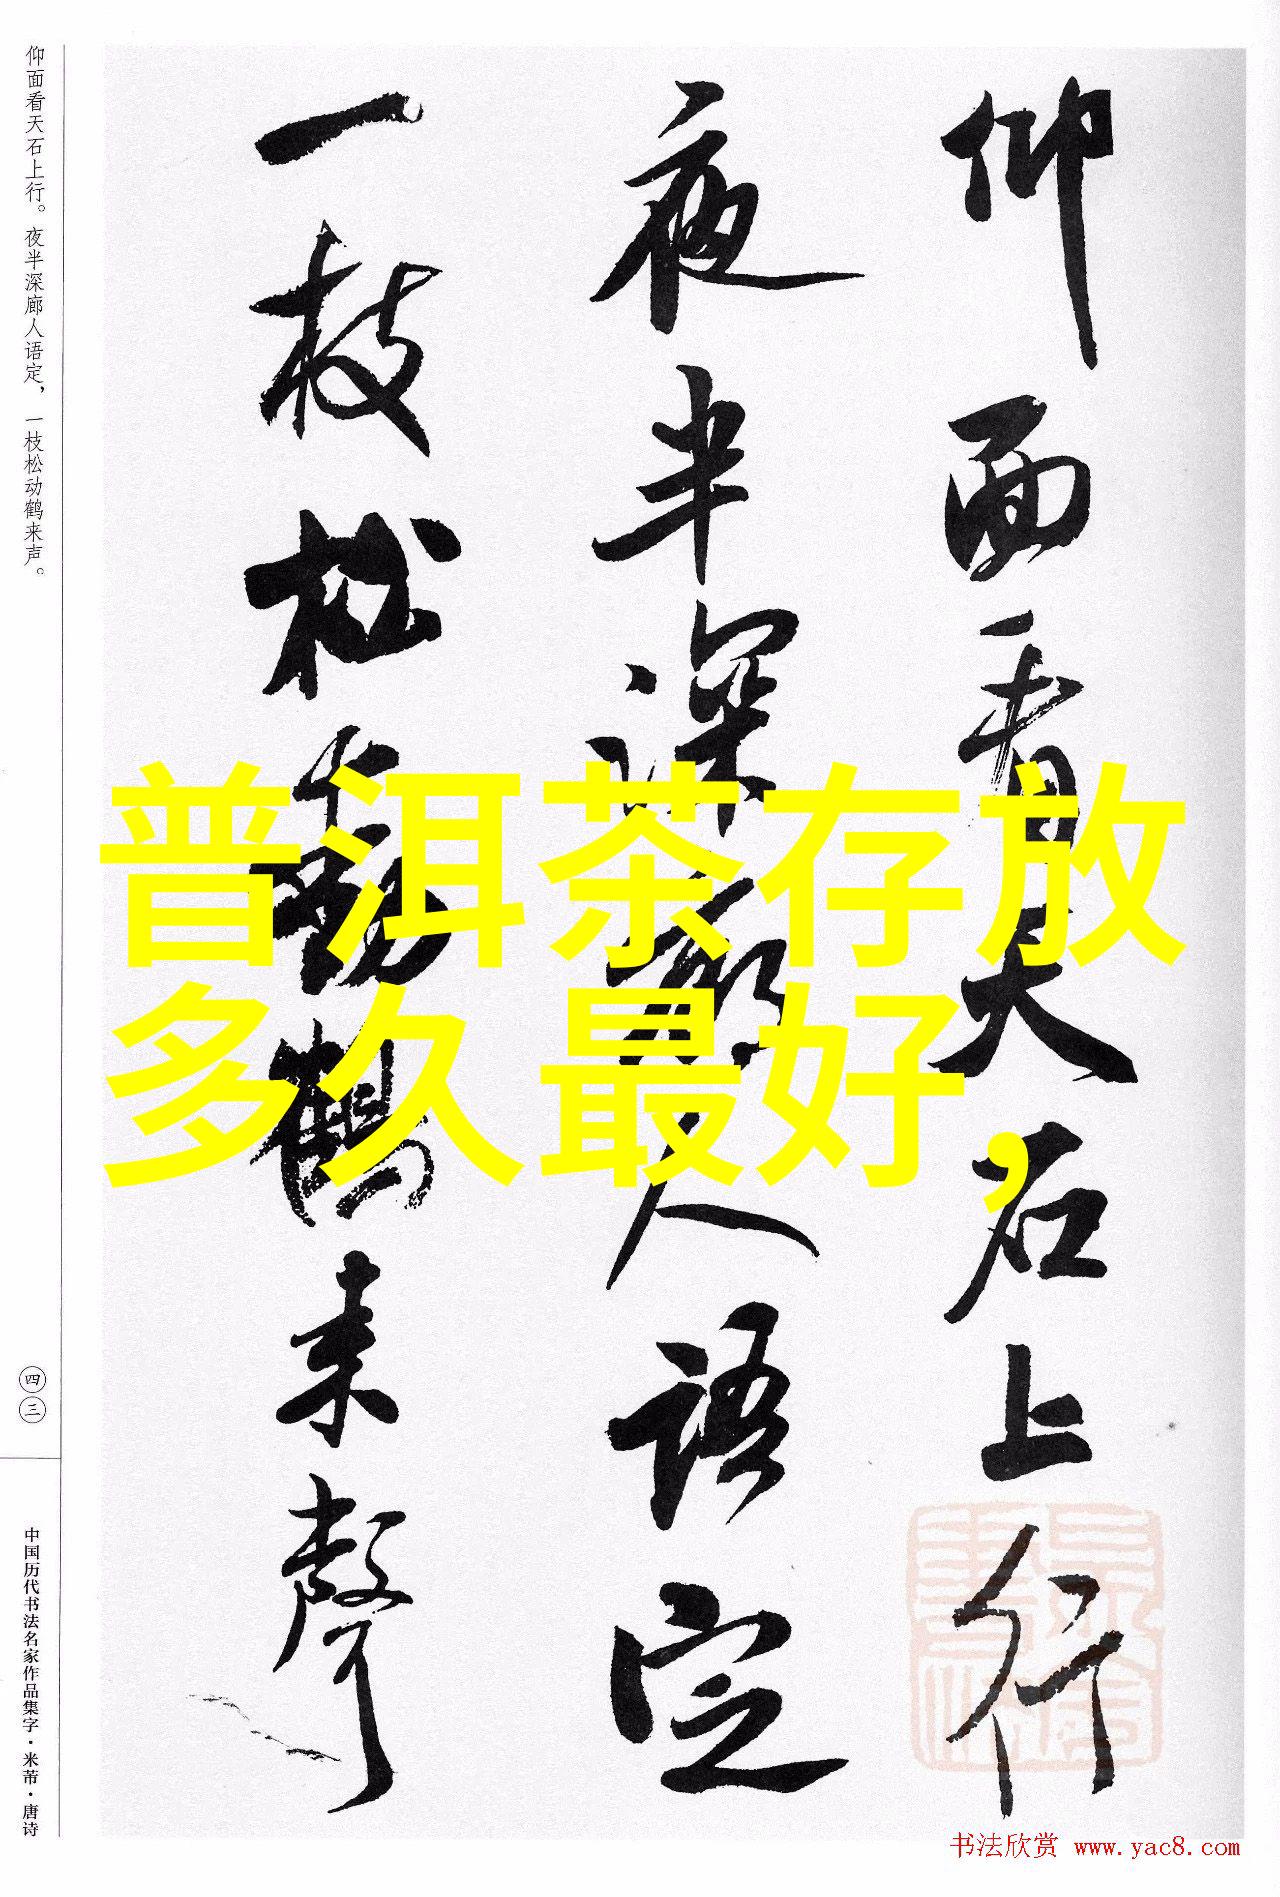 仰面看天石上行
夜半深廊人语定
一枝松動鶴来聲
仰面看天石上行。夜半深廊人语定，一枝松动鹤来声。
四三
中国历代书法名家作品集字·米芾·唐诗
普洱茶存放
多久最好，
书法欣赏 www.yac8.com